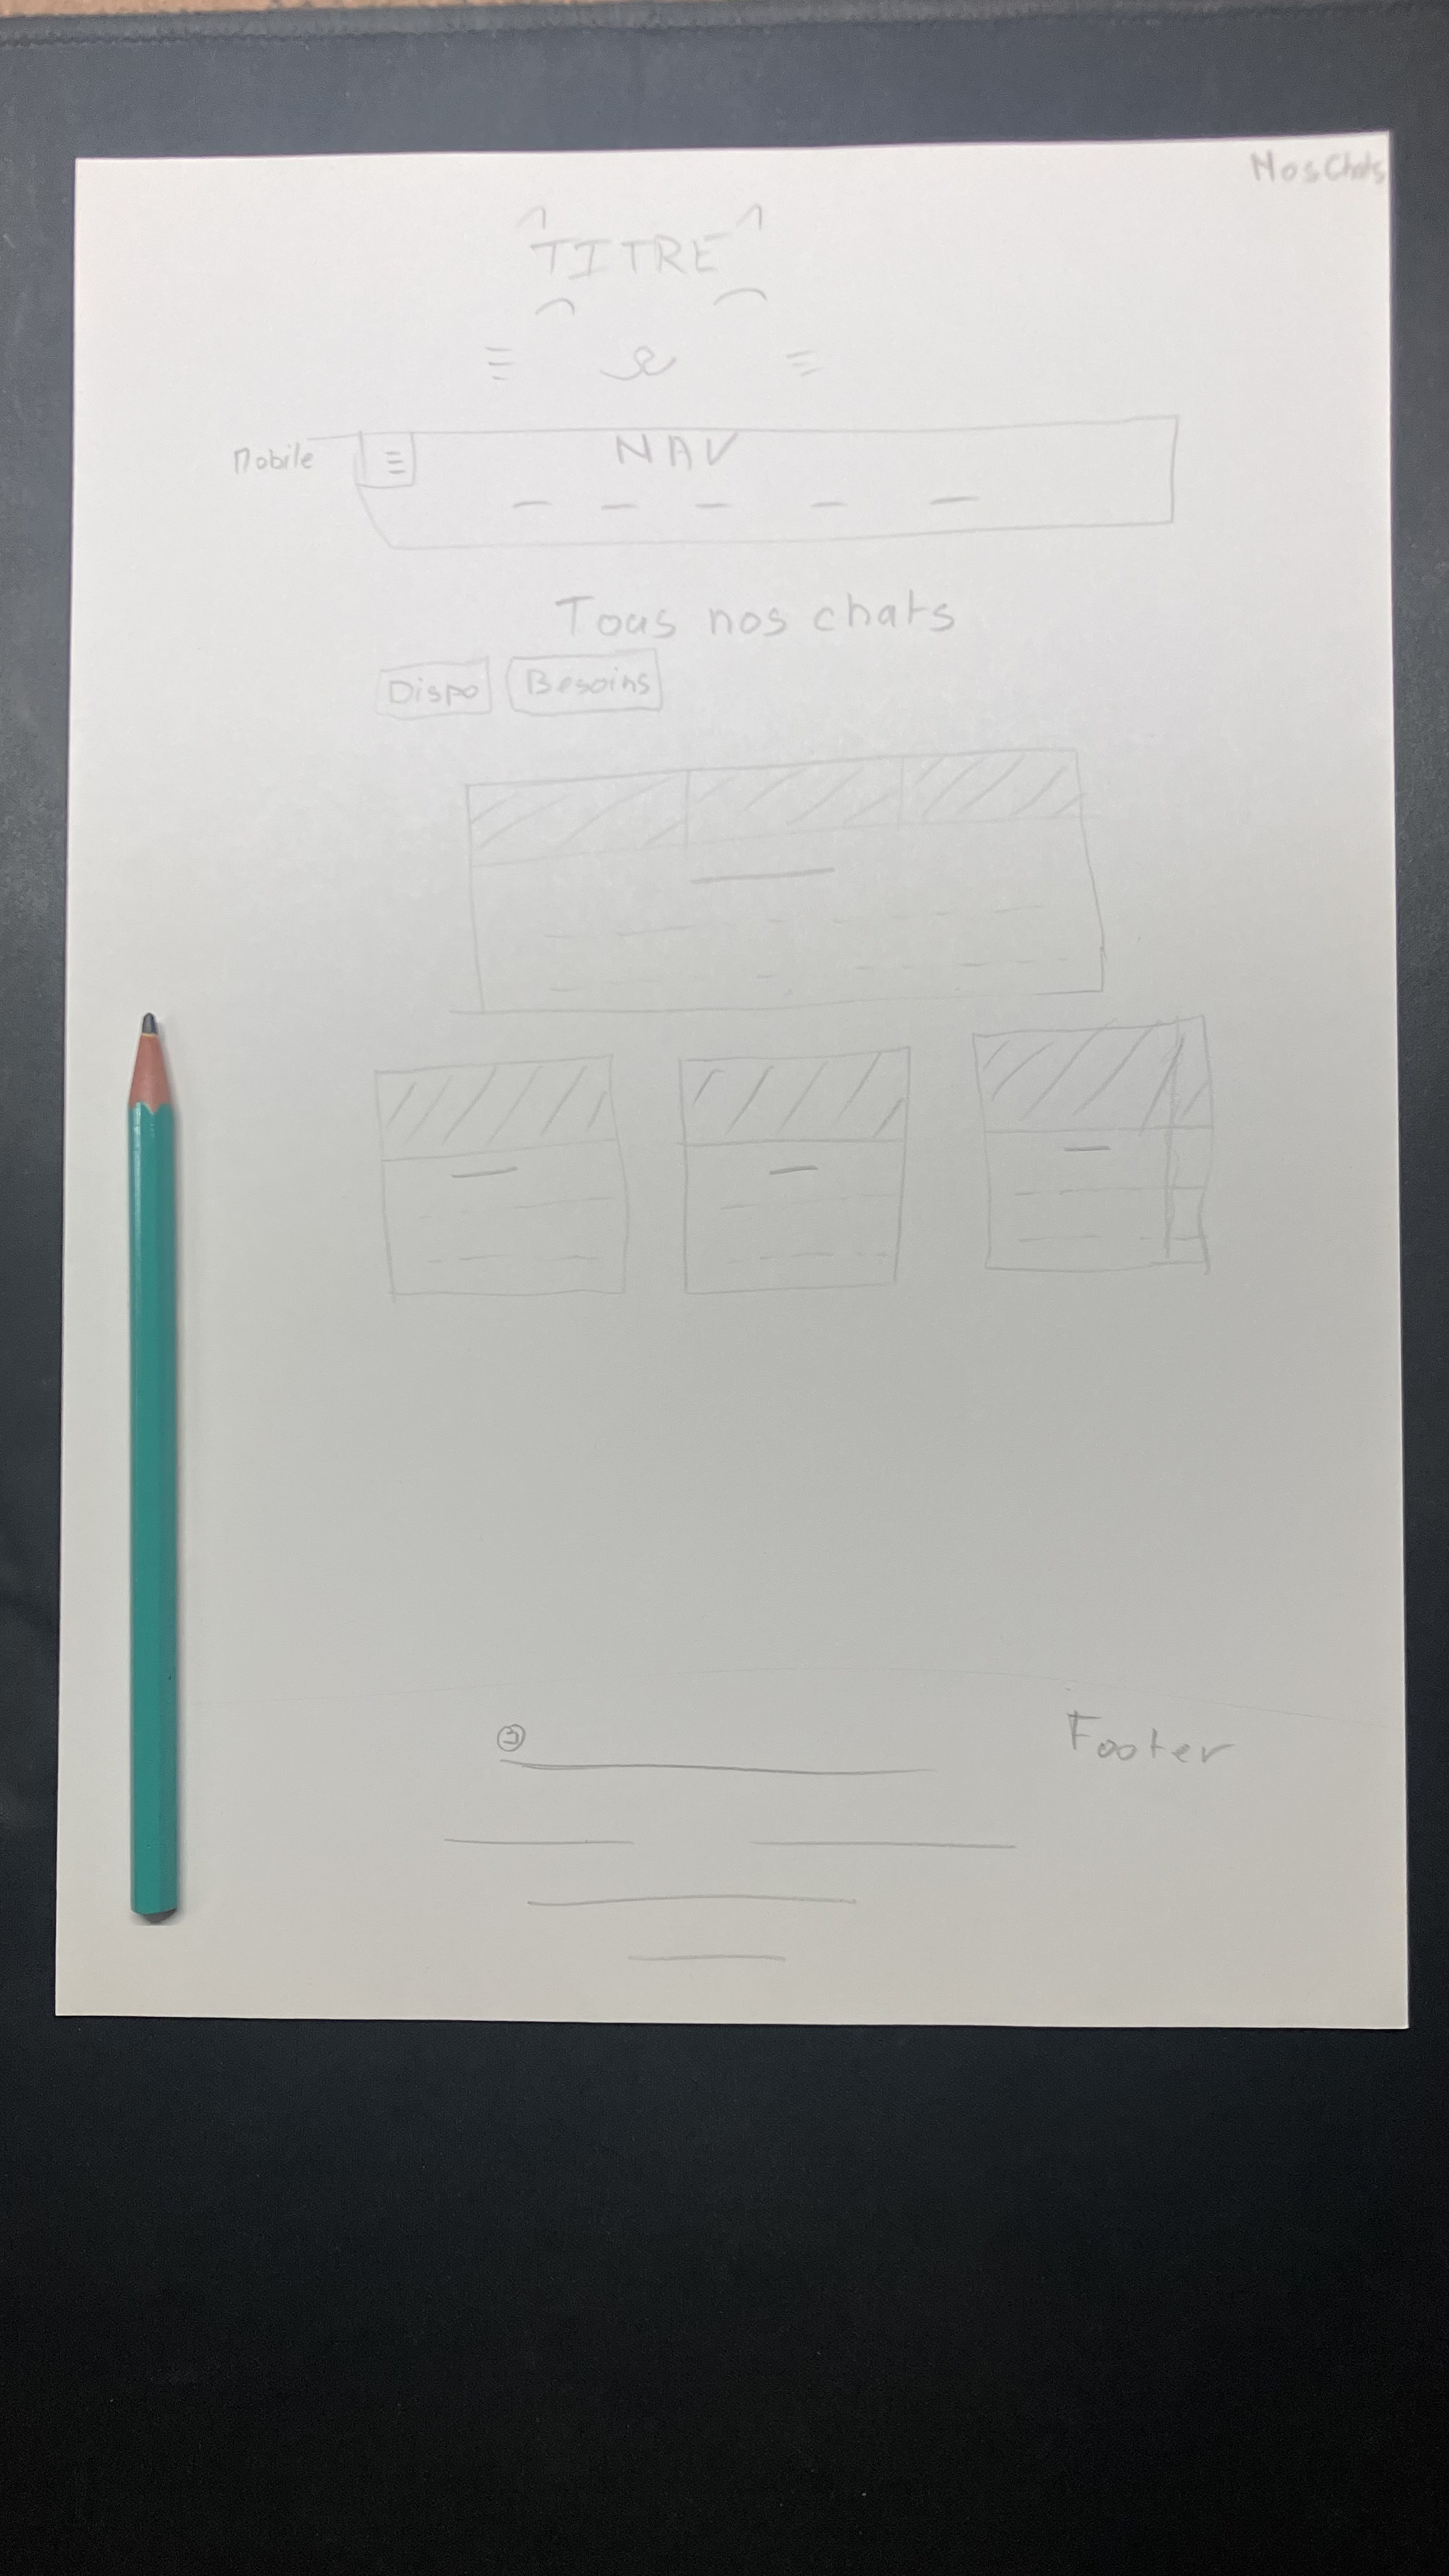 Nos Chats
TITRE
Mobile
NAV
Tous nos chats
Dispo
Besoins
Footer